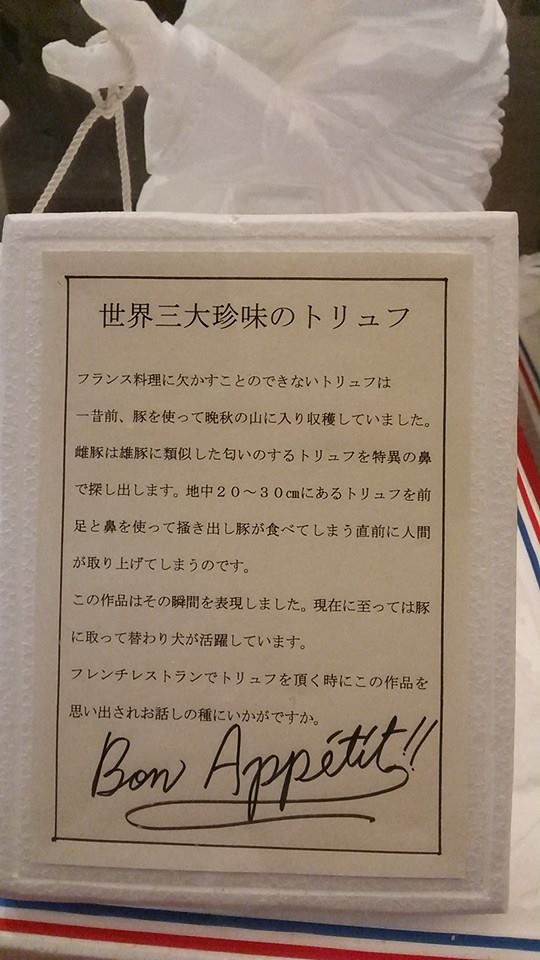 世界三大珍味のトリュフ
フランス料理に欠かすことのできないトリュフは
一昔前、豚を使って晩秋の山に入り収穫していました。
雌豚は雄豚に類似した匂いのするトリュフを特異の鼻
で探し出します。地中２０～３０㎝にあるトリュフを前
足と鼻を使って掻き出し豚が食べてしまう直前に人間
が取り上げてしまうのです。
この作品はその瞬間を表現しました。現在に至っては豚
に取って替わり犬が活躍しています。
フレンチレストランでトリュフを頂く時にこの作品を
思い出されお話しの種にいかがですか。
Bon Appétit!!